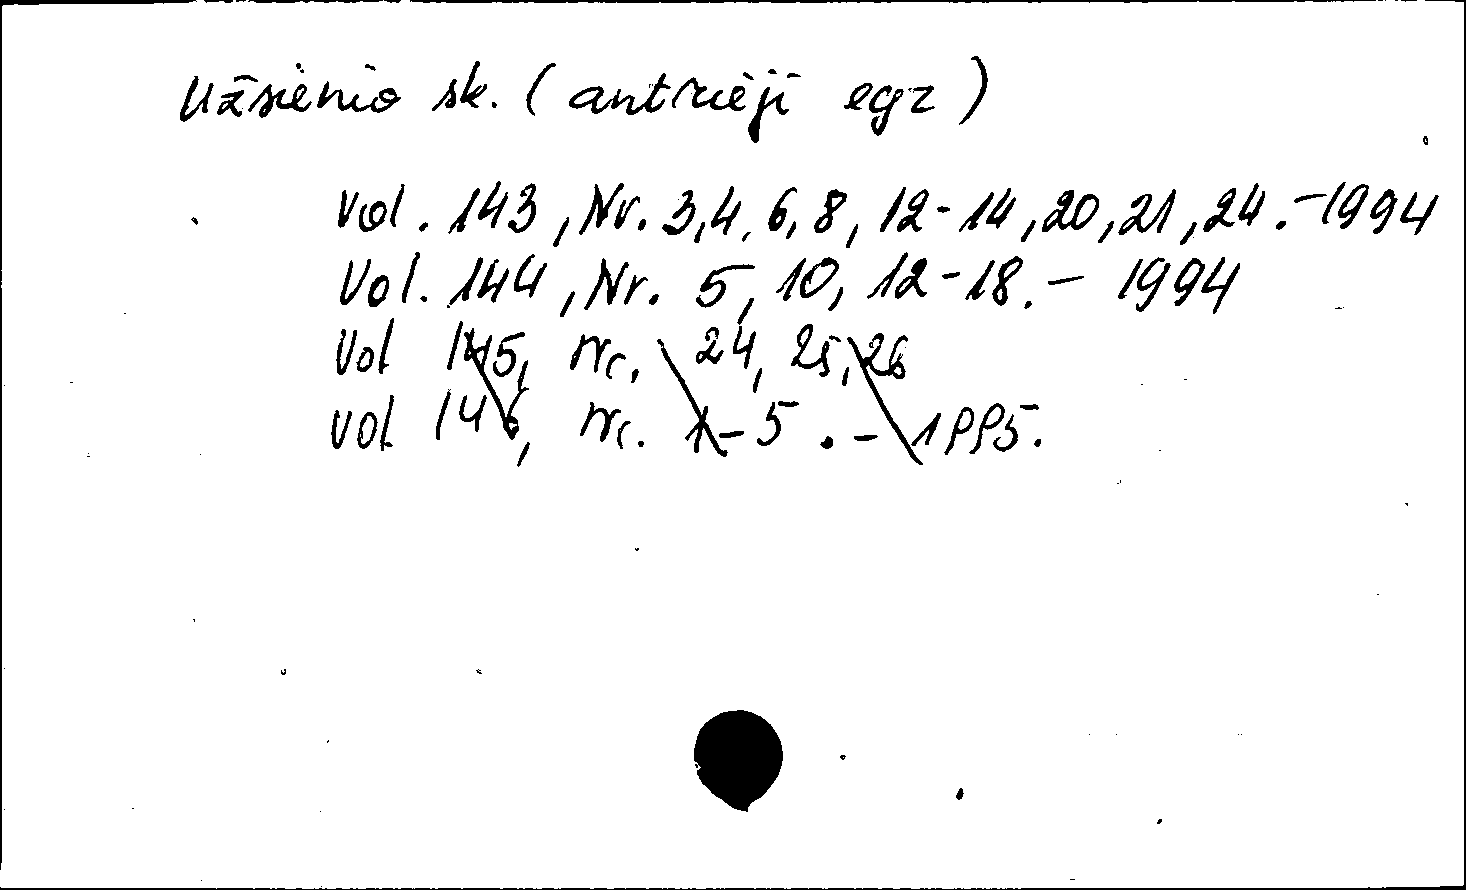 Užsienio sk. (antrieji egz)
Vol. 143, Nr. 3,4, 6, 8, 12-14, 20, 21, 24. - 1994
Vol. 144, Nr. 5, 10, 12-18. - 1994
Vol 145, Nr. 24, 25, 26
Vol 146, Nr. 1-5. - 1995.